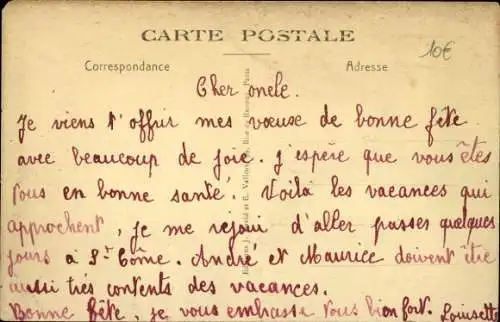 CARTE POSTALE
10€
Correspondance
Adresse
Cher oncle.
Je viens t'offrir mes vœuse de bonne fête
avec beaucoup de joie. j'espère que vous êtes
tous en bonne santé. Voilà les vacances qui
approchent, je me rejoui d'aller passer quelques
jours à St Côme. André et Maurice doivent être
aussi très contents des vacances.
Bonne fête, je vous embrasse tous bien fort. Louisette